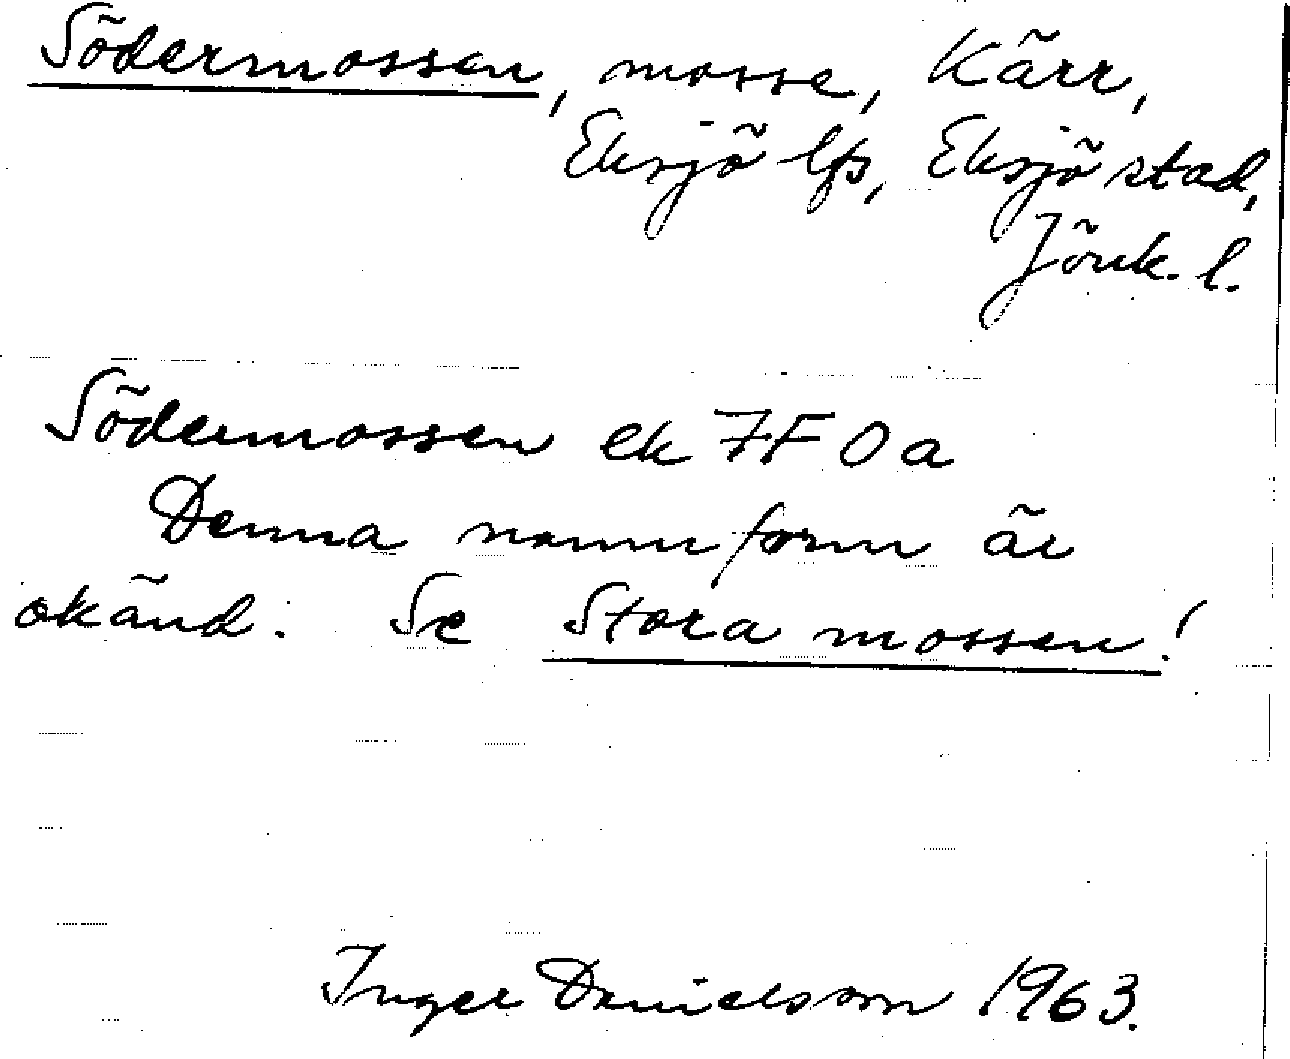 Södermossen, mosse, Kärr,
Eksjö lfs, Eksjö stad,
Jönk. l.
Södermossen ek 7F 0a
Denna namnform är
okänd. Se Stora mossen!
Inger Danielsson 1963.